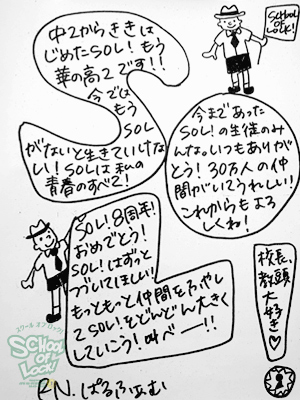 SCHOOL
OF
LOCK!
中2からききは
じめたSOL!もう
華の高2です!!
今では
もう
SOL
がないと生きていけな
い!SOLは私の
青春のすべて!
今まであった
SOL!の生徒のみ
んな。いつもありが
とう!30万人の仲
間がいてうれしい!
これからもよろ
しくね!
SOL!8周年!
おめでとう!
SOL!はずっと
つづいてほしい!
もっともっと仲間をふやし
てSOL!をどんどん大きく
していこう!叫べー!!
校長、教頭
大好き♡
スクールオブロック!
SCHOOL
OF
LOCK!
RN.ぱるふぁむ